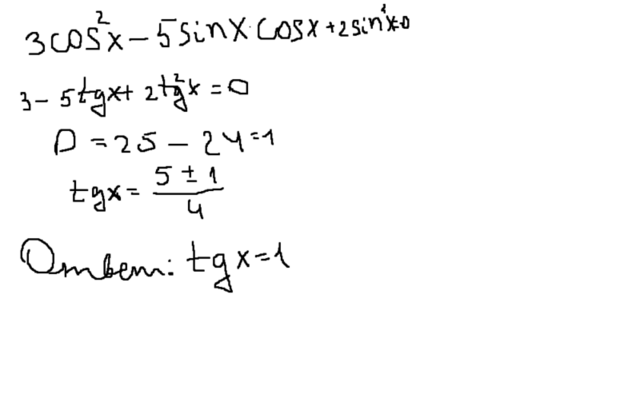 3cos²x – 5sinx·cosx+2sin²x=0
3 – 5tgx+ 2tg²x = 0
D = 25 – 24=1
tgx= (5 ± 1)/4
Ответ: tgx=1